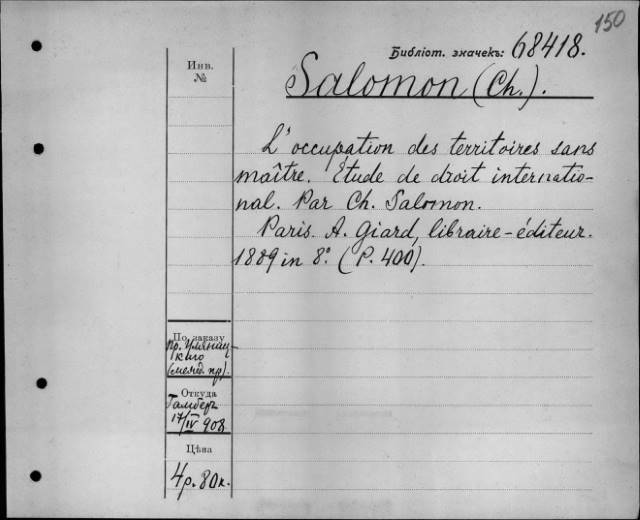 150
Библіот. значекъ: 68418.
Инв.
№
Salomon (Ch.).
L'occupation des territoires sans
maître. Étude de droit internatio-
nal. Par Ch. Salomon.
Paris. A. Giard, libraire-éditeur.
1889 in 8°. (P. 400).
По заказу
пр. Улянич-
каго
(межд. пр).
Откуда
Гамберъ
17/IV 908
Цѣна
4 р. 80 к.